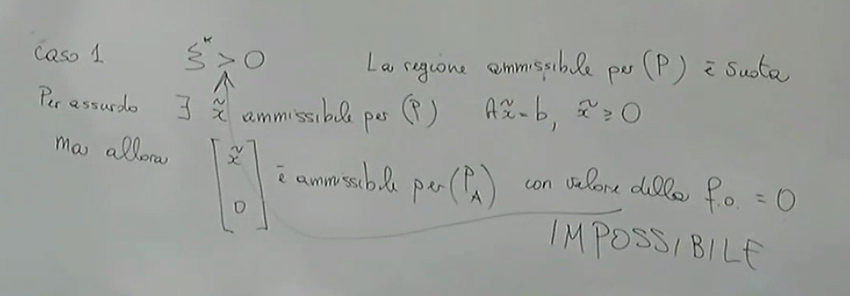 caso 1 ξ* > 0 La regione ammissibile per (P) è vuota
Per assurdo ∃ x̃ ammissibile per (P) Ax̃ = b, x̃ ≥ 0
ma allora [x̃ 0] è ammissibile per (P_A) con valore della f.o. = 0
IMPOSSIBILE